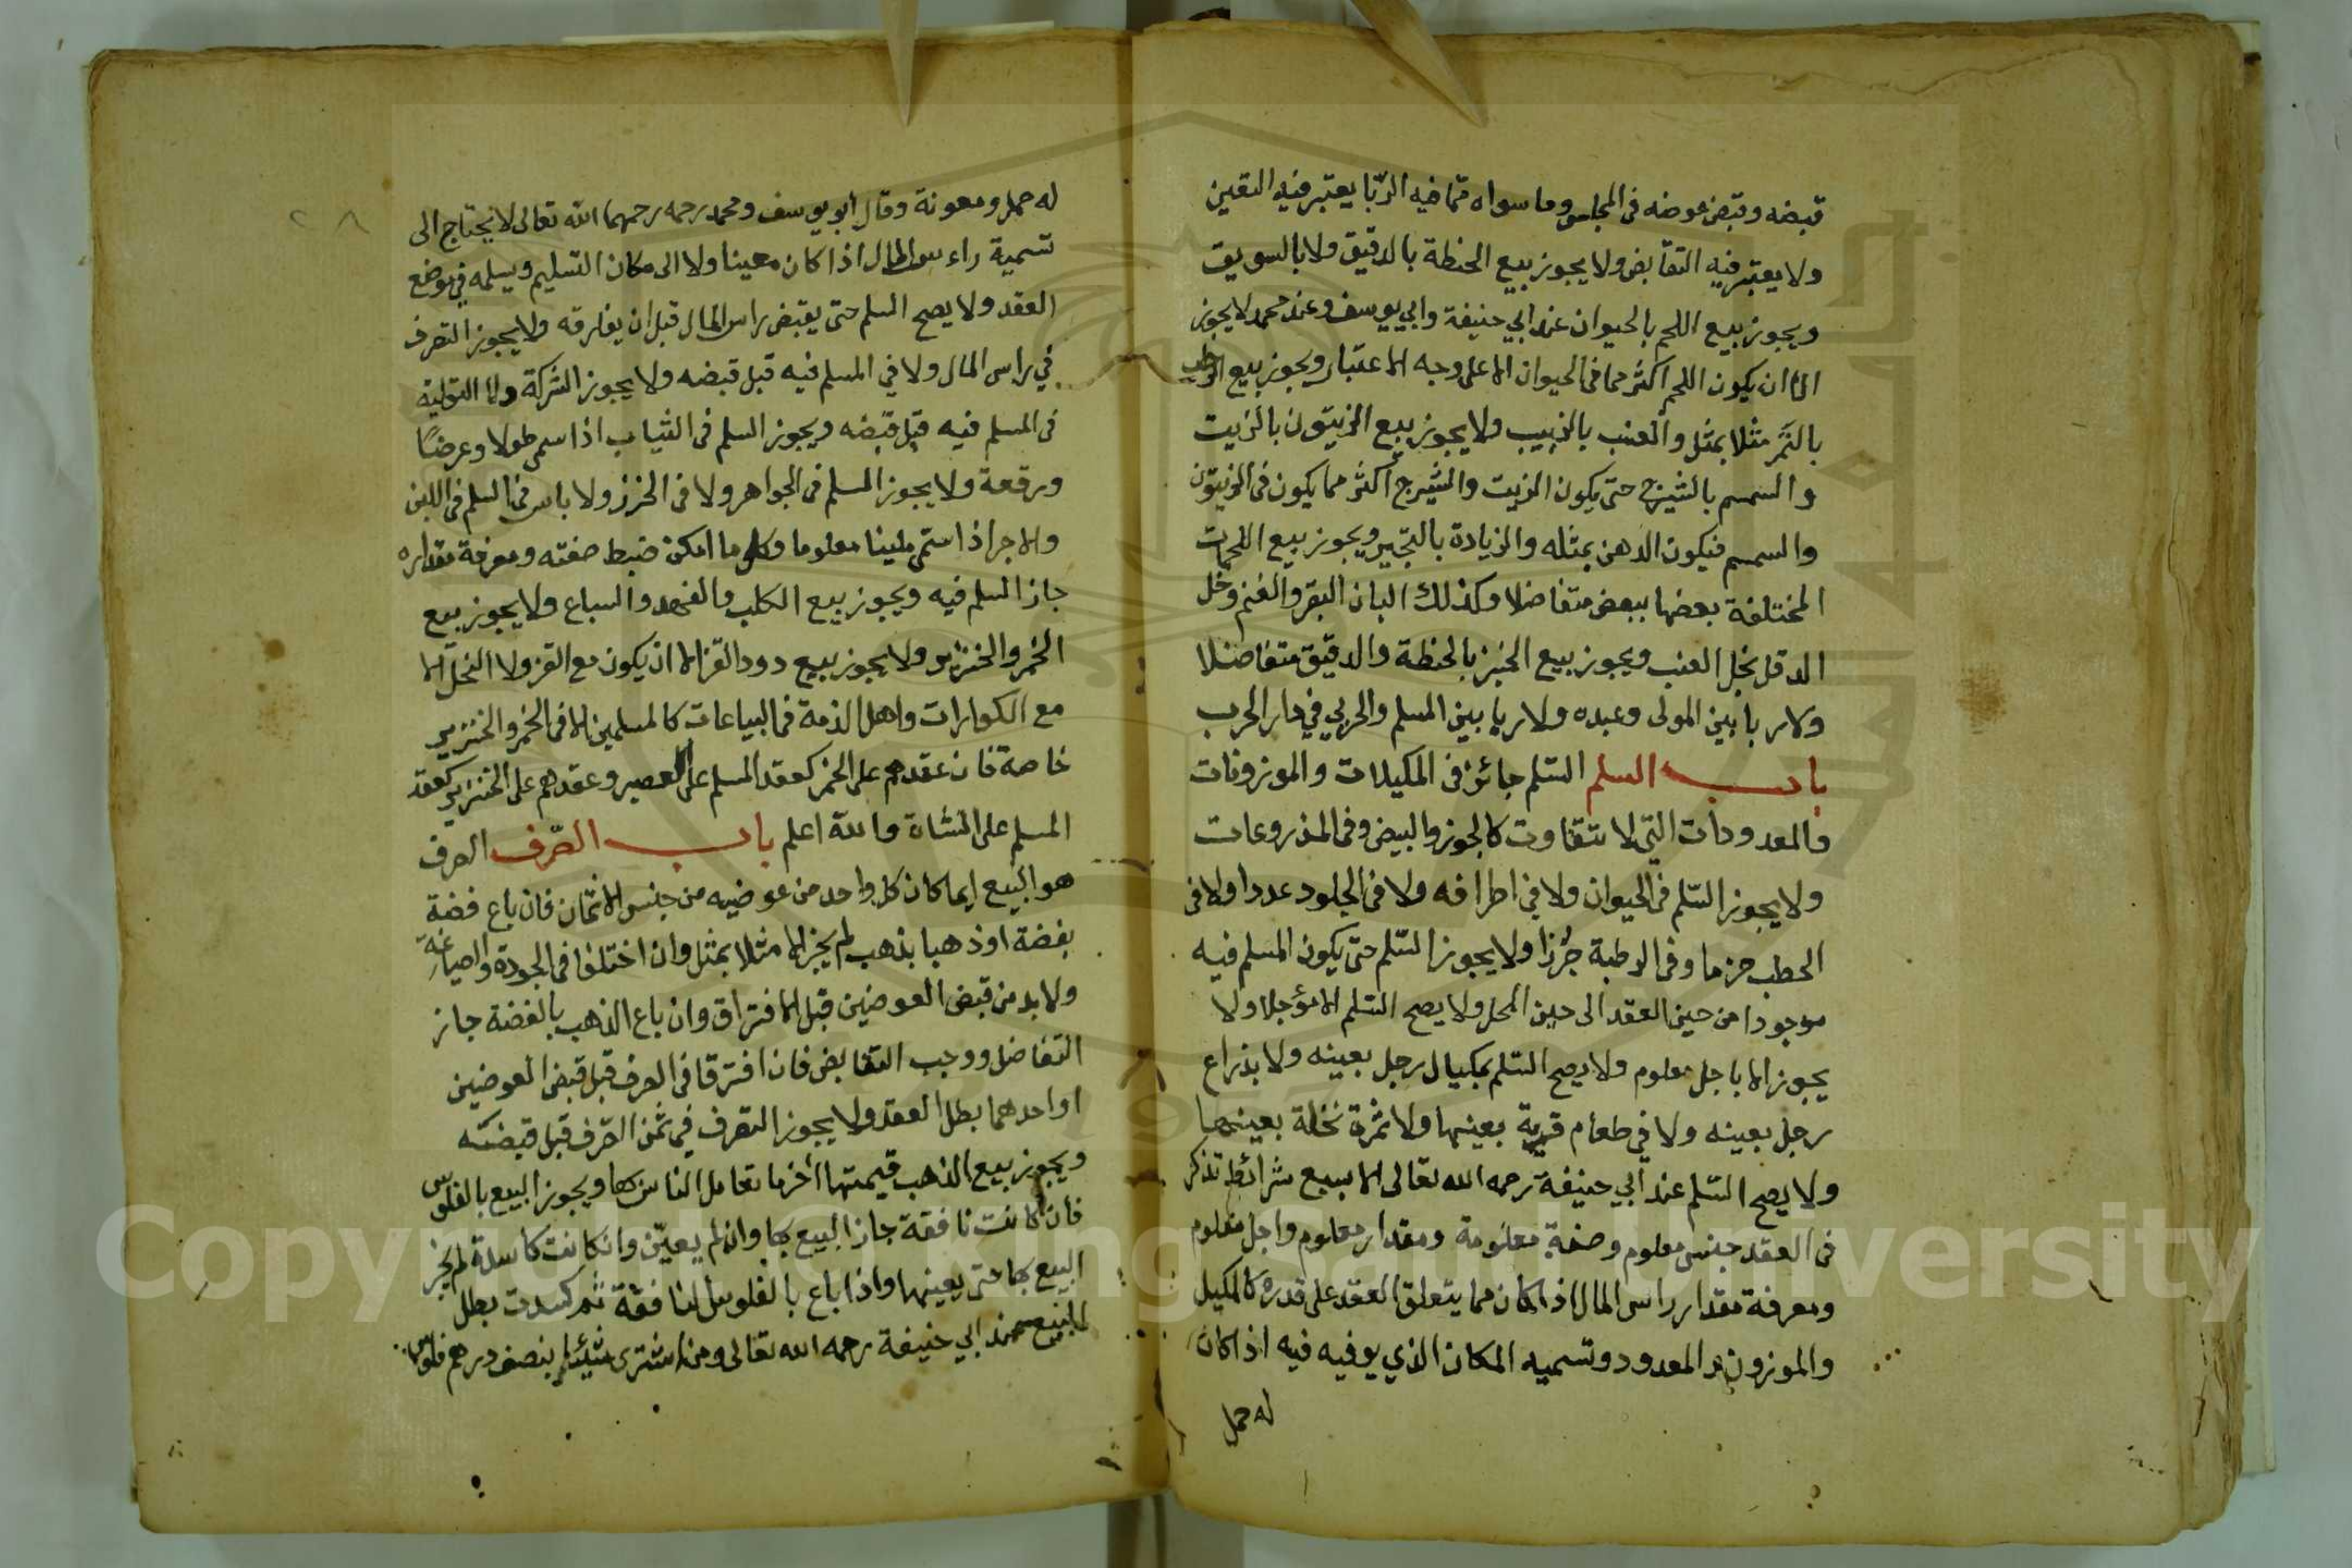 قبضه وقبض عوضه فى المجلس وما سواه مما فيه الربا يعتبر فيه التعين
ولا يعتبر فيه التقابض ولا يجوز بيع الحنطة بالدقيق ولا بالسويق
ويجوز بيع اللحم بالحيوان عند ابي حنيفة وابي يوسف وعند محمد لا يجوز
الا ان يكون اللحم اكثر مما فى الحيوان الا على وجه الاعتبار ويجوز بيع الرطب
بالتمر مثلا بمثل والعنب بالزبيب ولا يجوز بيع الزيتون بالزيت
والسمسم بالشيرج حتى يكون الزيت والشيرج اكثر مما يكون فى الزيتون
والسمسم فيكون الدهن بمثله والزيادة بالتجير ويجوز بيع اللحمات
المختلفة بعضها ببعض متفاضلا وكذلك البان البقر والغنم وخل
الدقل بخل العنب ويجوز بيع الخبز بالحنطة والدقيق متفاضلا
ولا ربا بين المولى وعبده ولا ربا بين المسلم والحربي في دار الحرب
باب السلم السّلم جائز فى المكيلات والموزونات
والمعدودات التي لا تتفاوت كالجوز والبيض وفى المذروعات
ولا يجوز السّلم فى الحيوان ولا في اطرافه ولا فى الجلود عددا ولا فى
الحطب حزما وفى الرطبة جُرزا ولا يجوز السّلم حتى يكون المسلم فيه
موجودا من حين العقد الى حين المحل ولا يصح السّلم الا مؤجلا ولا
يجوز الا باجل معلوم ولا يصح السّلم بمكيال رجل بعينه ولا بذراع
رجل بعينه ولا في طعام قرية بعينها ولا ثمرة نخلة بعينها
ولا يصح السّلم عند ابي حنيفة رحمه الله تعالى الا بسبع شرائط تذكر
فى العقد جنس معلوم وصفة معلومة ومقدار معلوم واجل معلوم
ومعرفة مقدار راس المال اذا كان مما يتعلق العقد على قدره كالمكيل
والموزون والمعدود وتسميه المكان الذي يوفيه فيه اذا كان
له حمل
٢٨
له حمل ومعونة وقال ابو يوسف ومحمد رحمه رحمهما الله تعالى لا يحتاج الى
تسمية راءس المال اذا كان معينا ولا الى مكان التسليم ويسلمه في موضع
العقد ولا يصح السلم حتى يقبض راس المال قبل ان يفارقه ولا يجوز التصرف
في راس المال ولا في المسلم فيه قبل قبضه ولا يجوز الشركة ولا التولية
فى المسلم فيه قبل قبضه ويجوز السلم فى الثياب اذا سمى طولا وعرضًا
ورقعة ولا يجوز المسلم فى الجواهر ولا فى الخرز ولا باس فى السلم فى اللبن
والاجر اذا سمى ملبنا معلوما وكل ما امكن ضبط صفته ومعرفة مقداره
جاز السلم فيه ويجوز بيع الكلب والفهد والسباع ولا يجوز بيع
الخمر والخنزير ولا يجوز بيع دود القز الا ان يكون مع القز ولا النحل الا
مع الكوارات واهل الذمة فى البياعات كالمسلمين الا فى الخمر والخنزير
خاصة فان عقدهم على الخمر كعقد المسلم على العصير وعقدهم على الخنزير كعقد
المسلم على الشاة والله اعلم باب الصّرف الصرف
هو البيع ايما كان كل واحد من عوضيه من جنس الاثمان فان باع فضة
بفضة او ذهبا بذهب لم يجز الا مثلا بمثل وان اختلفا فى الجودة والصياغة
ولا بد من قبض العوضين قبل الافتراق وان باع الذهب بالفضة جاز
التفاضل ووجب التقابض فان افترقا فى الصرف قبل قبض العوضين
او احدهما بطل العقد ولا يجوز التصرف في ثمن الصّرف قبل قبضه
ويجوز بيع الذهب قيمتها اخر ما تعامل الناس بها ويجوز البيع بالفلوس
فان كانت نافقة جاز البيع بها وان لم يعيّن وان كانت كاسدة لم يجز
البيع بها حتى يعينها واذا باع بالفلوس النافقة ثم كسدت بطل
البيع عند ابي حنيفة رحمه الله تعالى ومن اشترى شيئا بنصف درهم فلوس